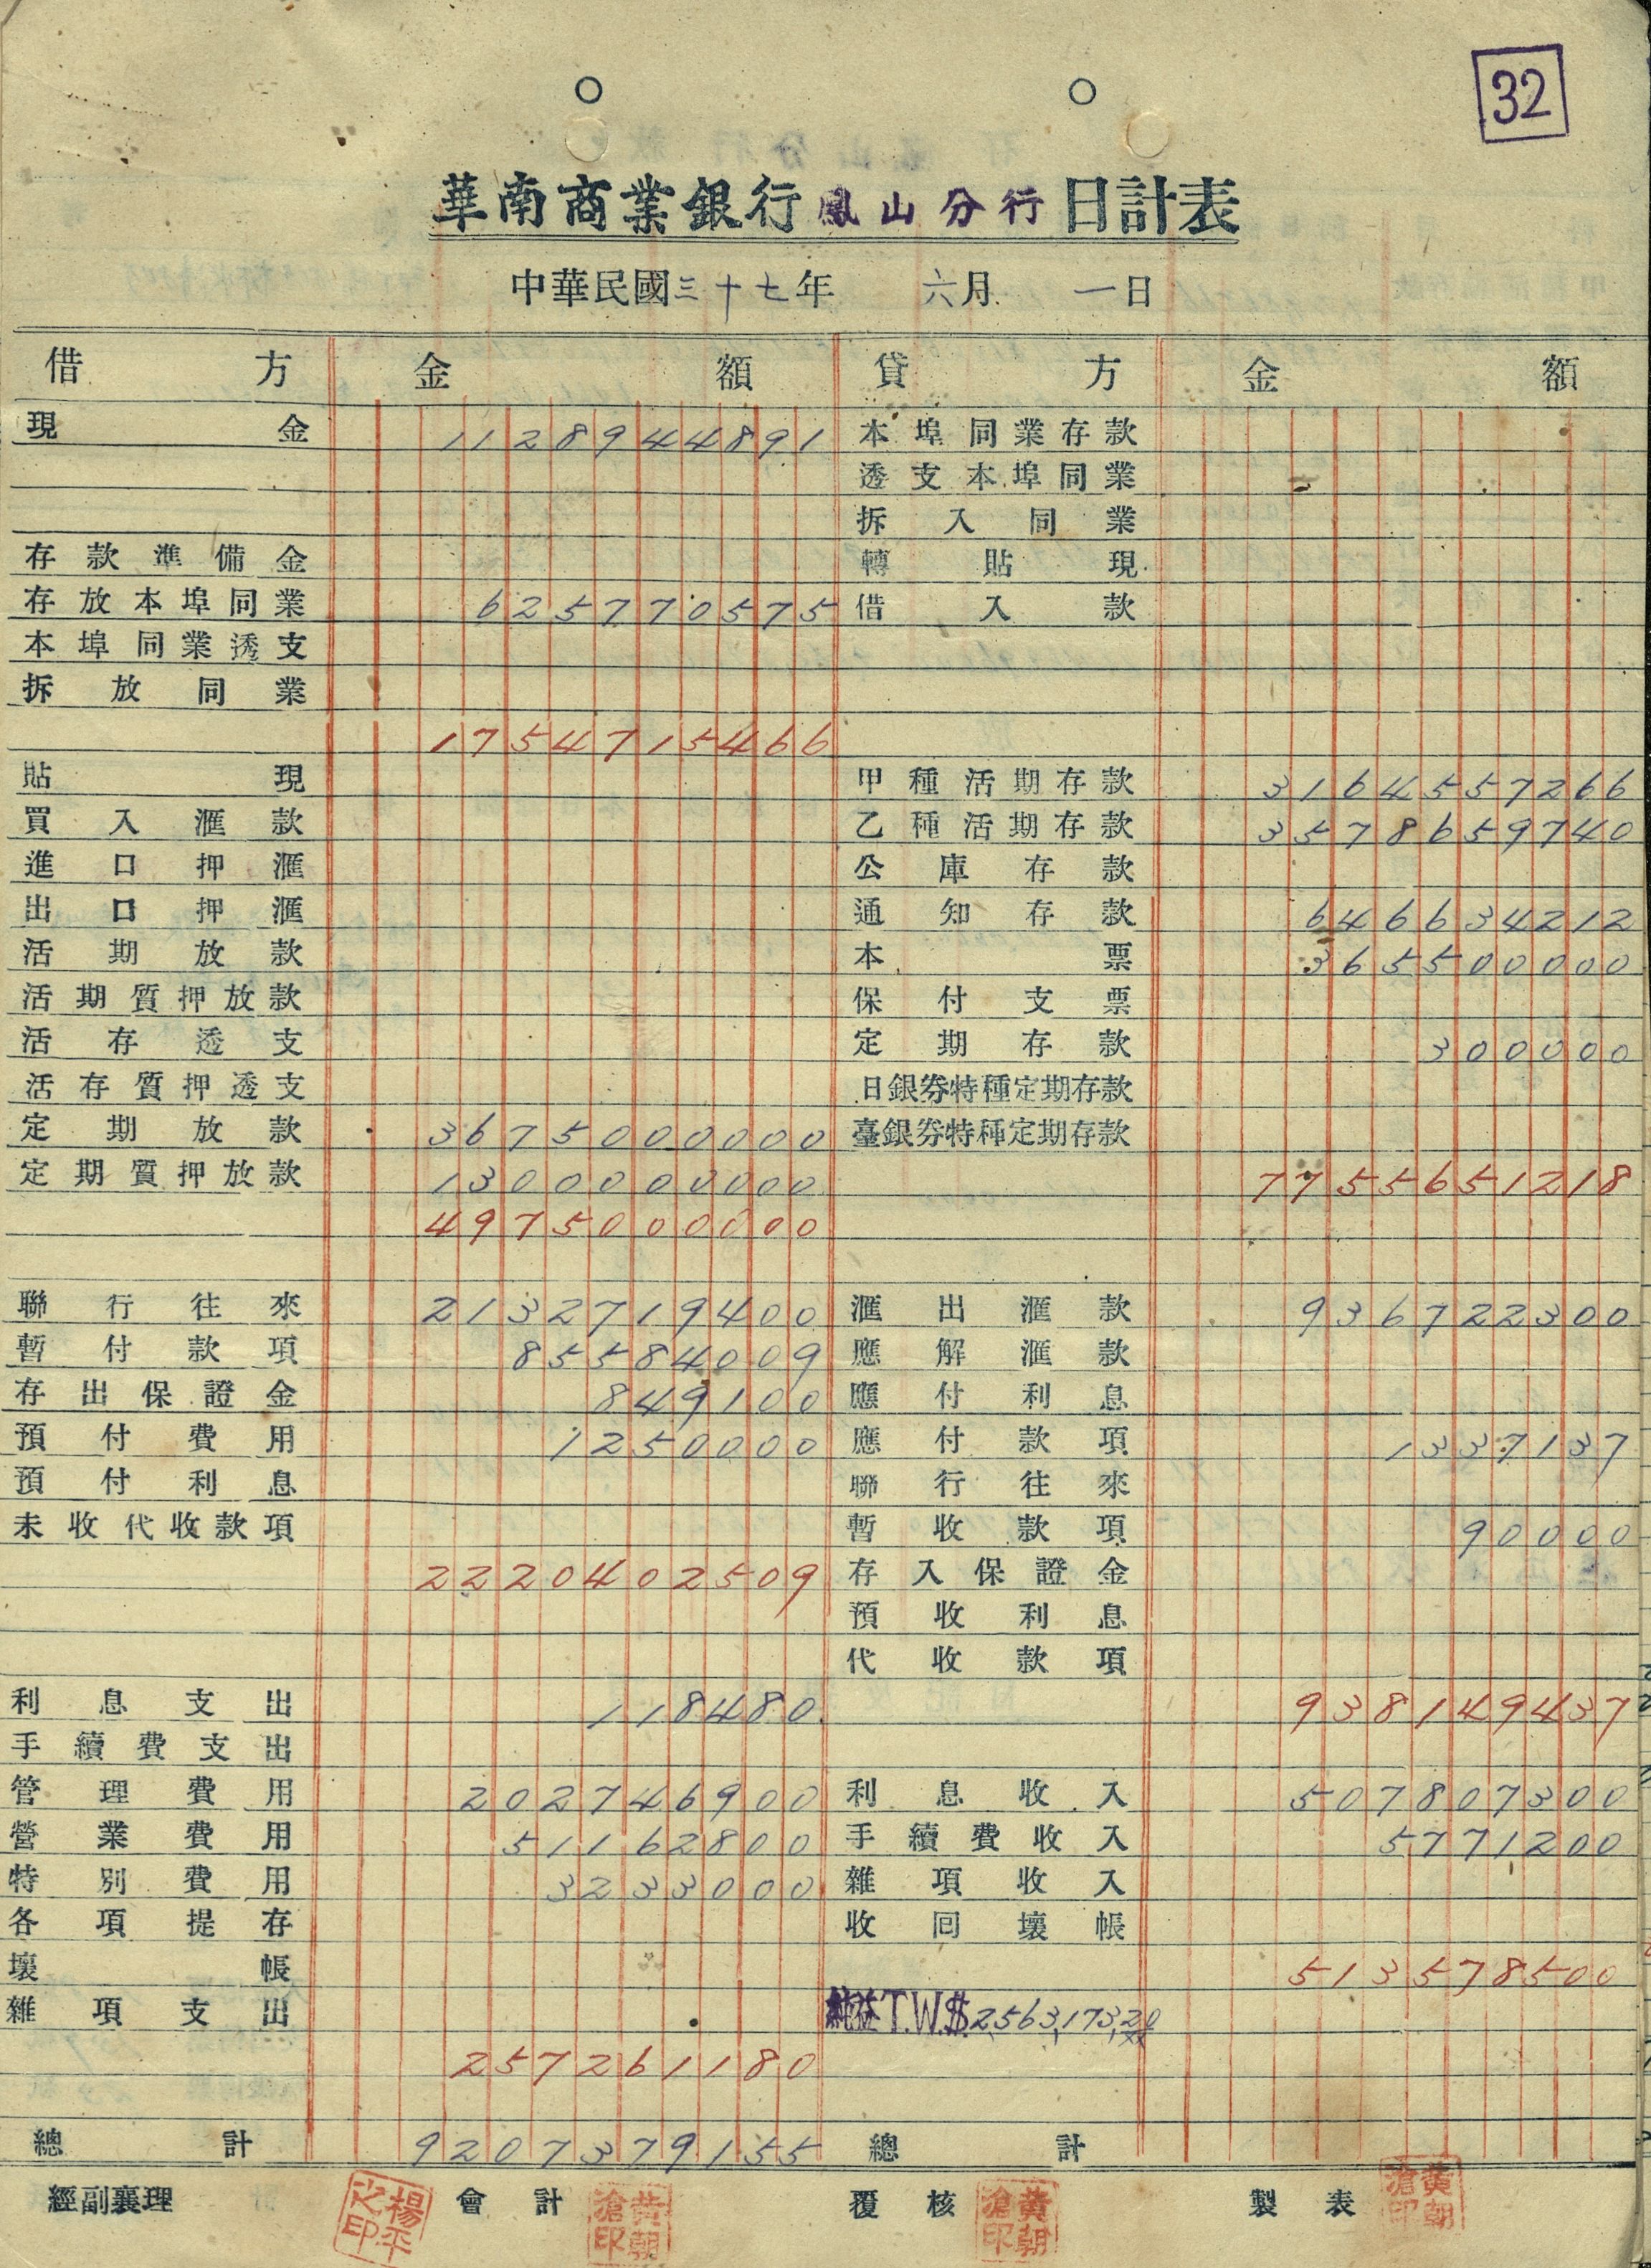 32
華南商業銀行鳳山分行日計表
中華民國三十七年 六月 一日
借方 金額 貸方 金額
現金 1128944891 本埠同業存款
透支本埠同業
拆入同業
存款準備金 轉貼現
存放本埠同業 625770575 借入款
本埠同業透支
拆放同業
1754715466
貼現 甲種活期存款 3164557266
買入滙款 乙種活期存款 3578659740
進口押滙 公庫存款
出口押滙 通知存款 646634212
活期放款 本票 365500000
活期質押放款 保付支票
活存透支 定期存款 300000
活存質押透支 日銀券特種定期存款
定期放款 3675000000 臺銀券特種定期存款
定期質押放款 1300000000 7755651218
4975000000
聯行往來 2132719400 滙出滙款 936722300
暫付款項 85584009 應解滙款
存出保證金 849100 應付利息
預付費用 1250000 應付款項 1337137
預付利息 聯行往來
未收代收款項 暫收款項 90000
2220402509 存入保證金
預收利息
代收款項
利息支出 118480 938149437
手續費支出
管理費用 202746900 利息收入 507807300
營業費用 51162800 手續費收入 5771200
特別費用 3233000 雜項收入
各項提存 收回壞帳
壞帳 513578500
雜項支出 純益T.W.$2,563,173.20
257261180
總計 9207379155 總計
經副襄理 會計 覆核 製表
黃朝滄印 黃朝滄印 黃朝滄印